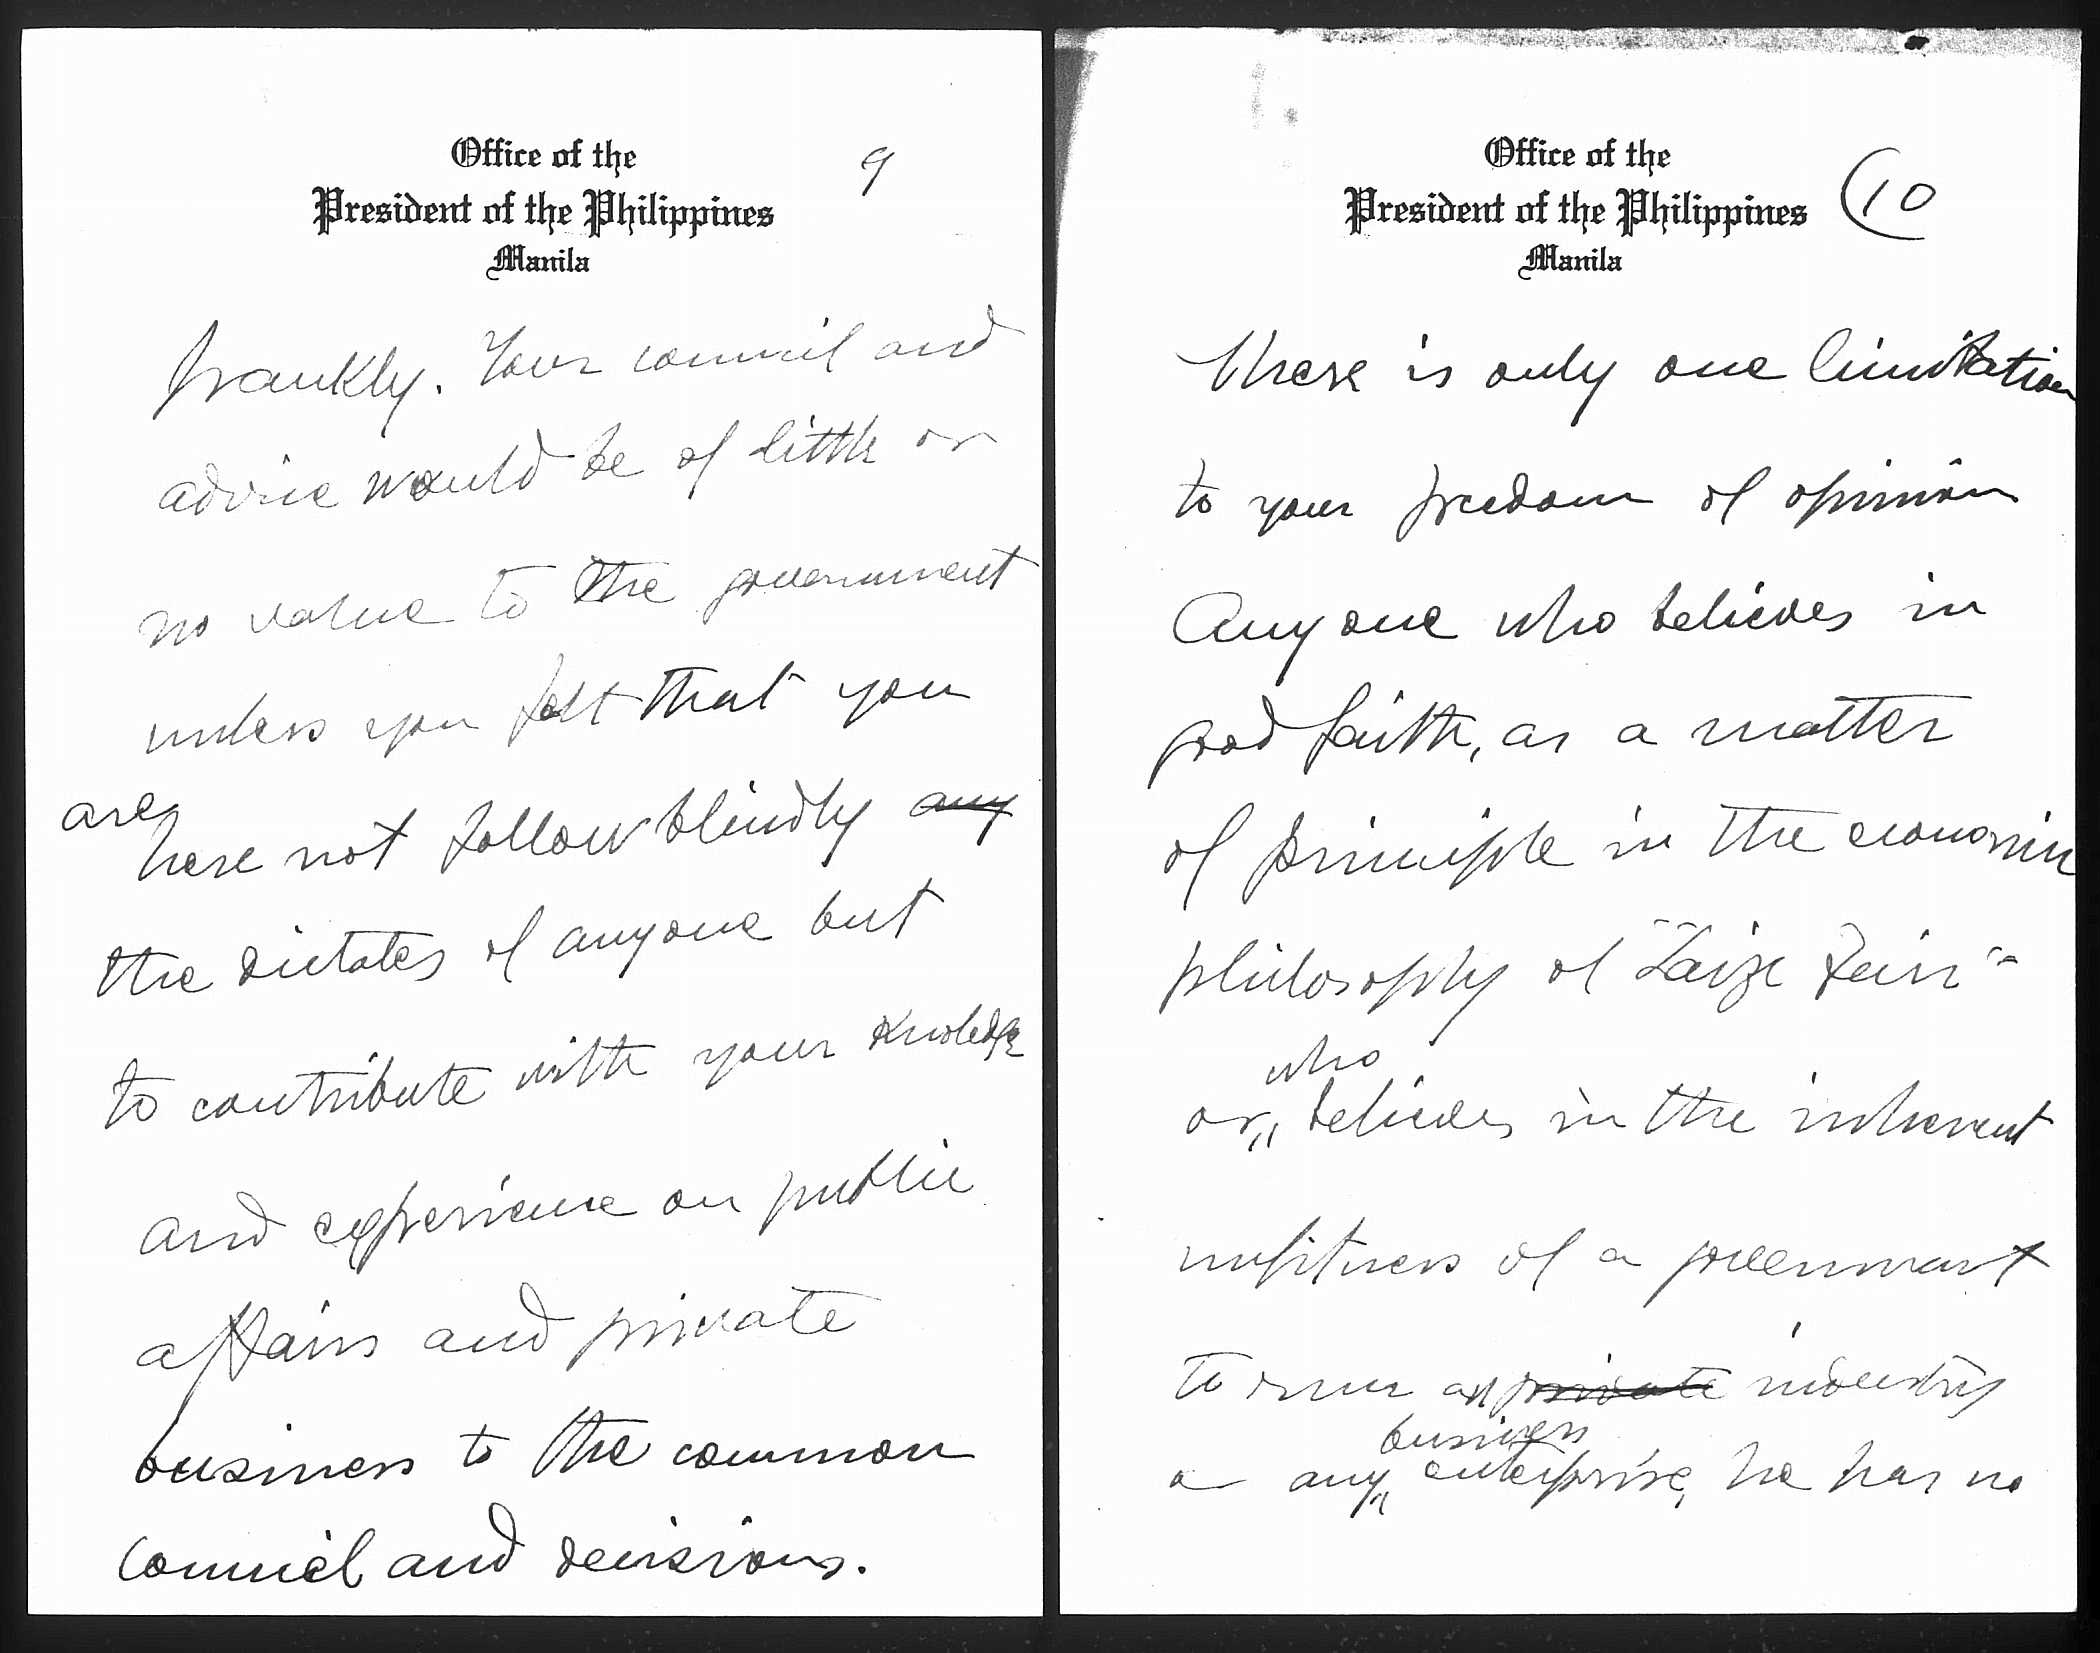 Office of the
President of the Philippines
Manila
9
frankly. Your council and
advice would be of little or
no value to the government
unless you felt that you
are
here not follow blindly any
the dictates of anyone but
to contribute with your knoledge
and experience on public
affairs and private
business to the common
council and decisions.
Office of the
President of the Philippines
Manila
10
There is only one limitation
to your freedom of opinion
Anyone who believes in
good faith, as a matter
of principle in the economic
philosophy of "Laize Fair"
who
or believes in the inherent
unfitness of a government
to run an private industry
business
or any enterprise, he has no